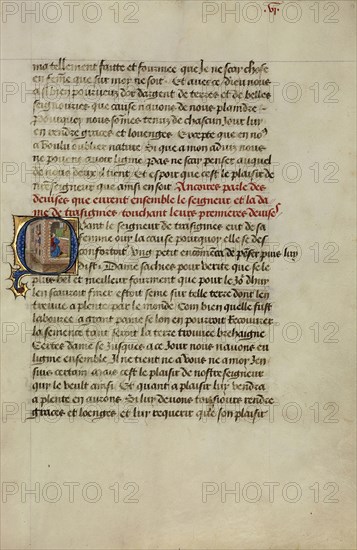 .vj.
ma tellement faitte et fourmee que Je ne scay chose
en feme que sur moy ne soit. Et avec ce dieu nous
a si bien pourveuz dor dargent de terres et de belles
seignouries que cause navons de nous plaindre.
Pourquoy nous sommes tenuz de chascun Jour luy
en rendre graces et louenges. Excepte que en nous
a voulu oublier nature. Si que a mon advis nous
ne povons avoir ligne. Pas ne scay penser auquel
de nous deux il tient. Et espoir que cest le plaisir de
nostre seigneur que ainsi en soit. Ancores parle des
devises que eurent ensemble le seigneur et la da
me de trasignes touchant leurs premieres devises
Quant le seigneur de trasignes eut de sa
femme ouy la cause pourquoy elle se des
confortoit Ung petit encommenca de penser puis luy
dist. Dame sachies pour verite que se le
plus bel et meilleur fourment que pour le Jo dhuy
len sauroit finer estoit seme sur telle terre dont len
treuve a plente par le monde. Combien quelle fust
labouree a grant paine se lon en pourroit Recouvrer
la semence tant seroit la terre trouvee brehaigne
Certes dame se Jusques a ce Jour nous navons eu
ligne ensemble Il ne tient ne a vous ne a moy Jen
suis certain. mais cest le plaisir de nostre seigneur
quy le veult ainsi. Et quant a plaisir luy vendra
a plente en aurons. Si luy devons tousjours rendre
graces et loenges et luy requerir que son plaisir
PHOTO 12